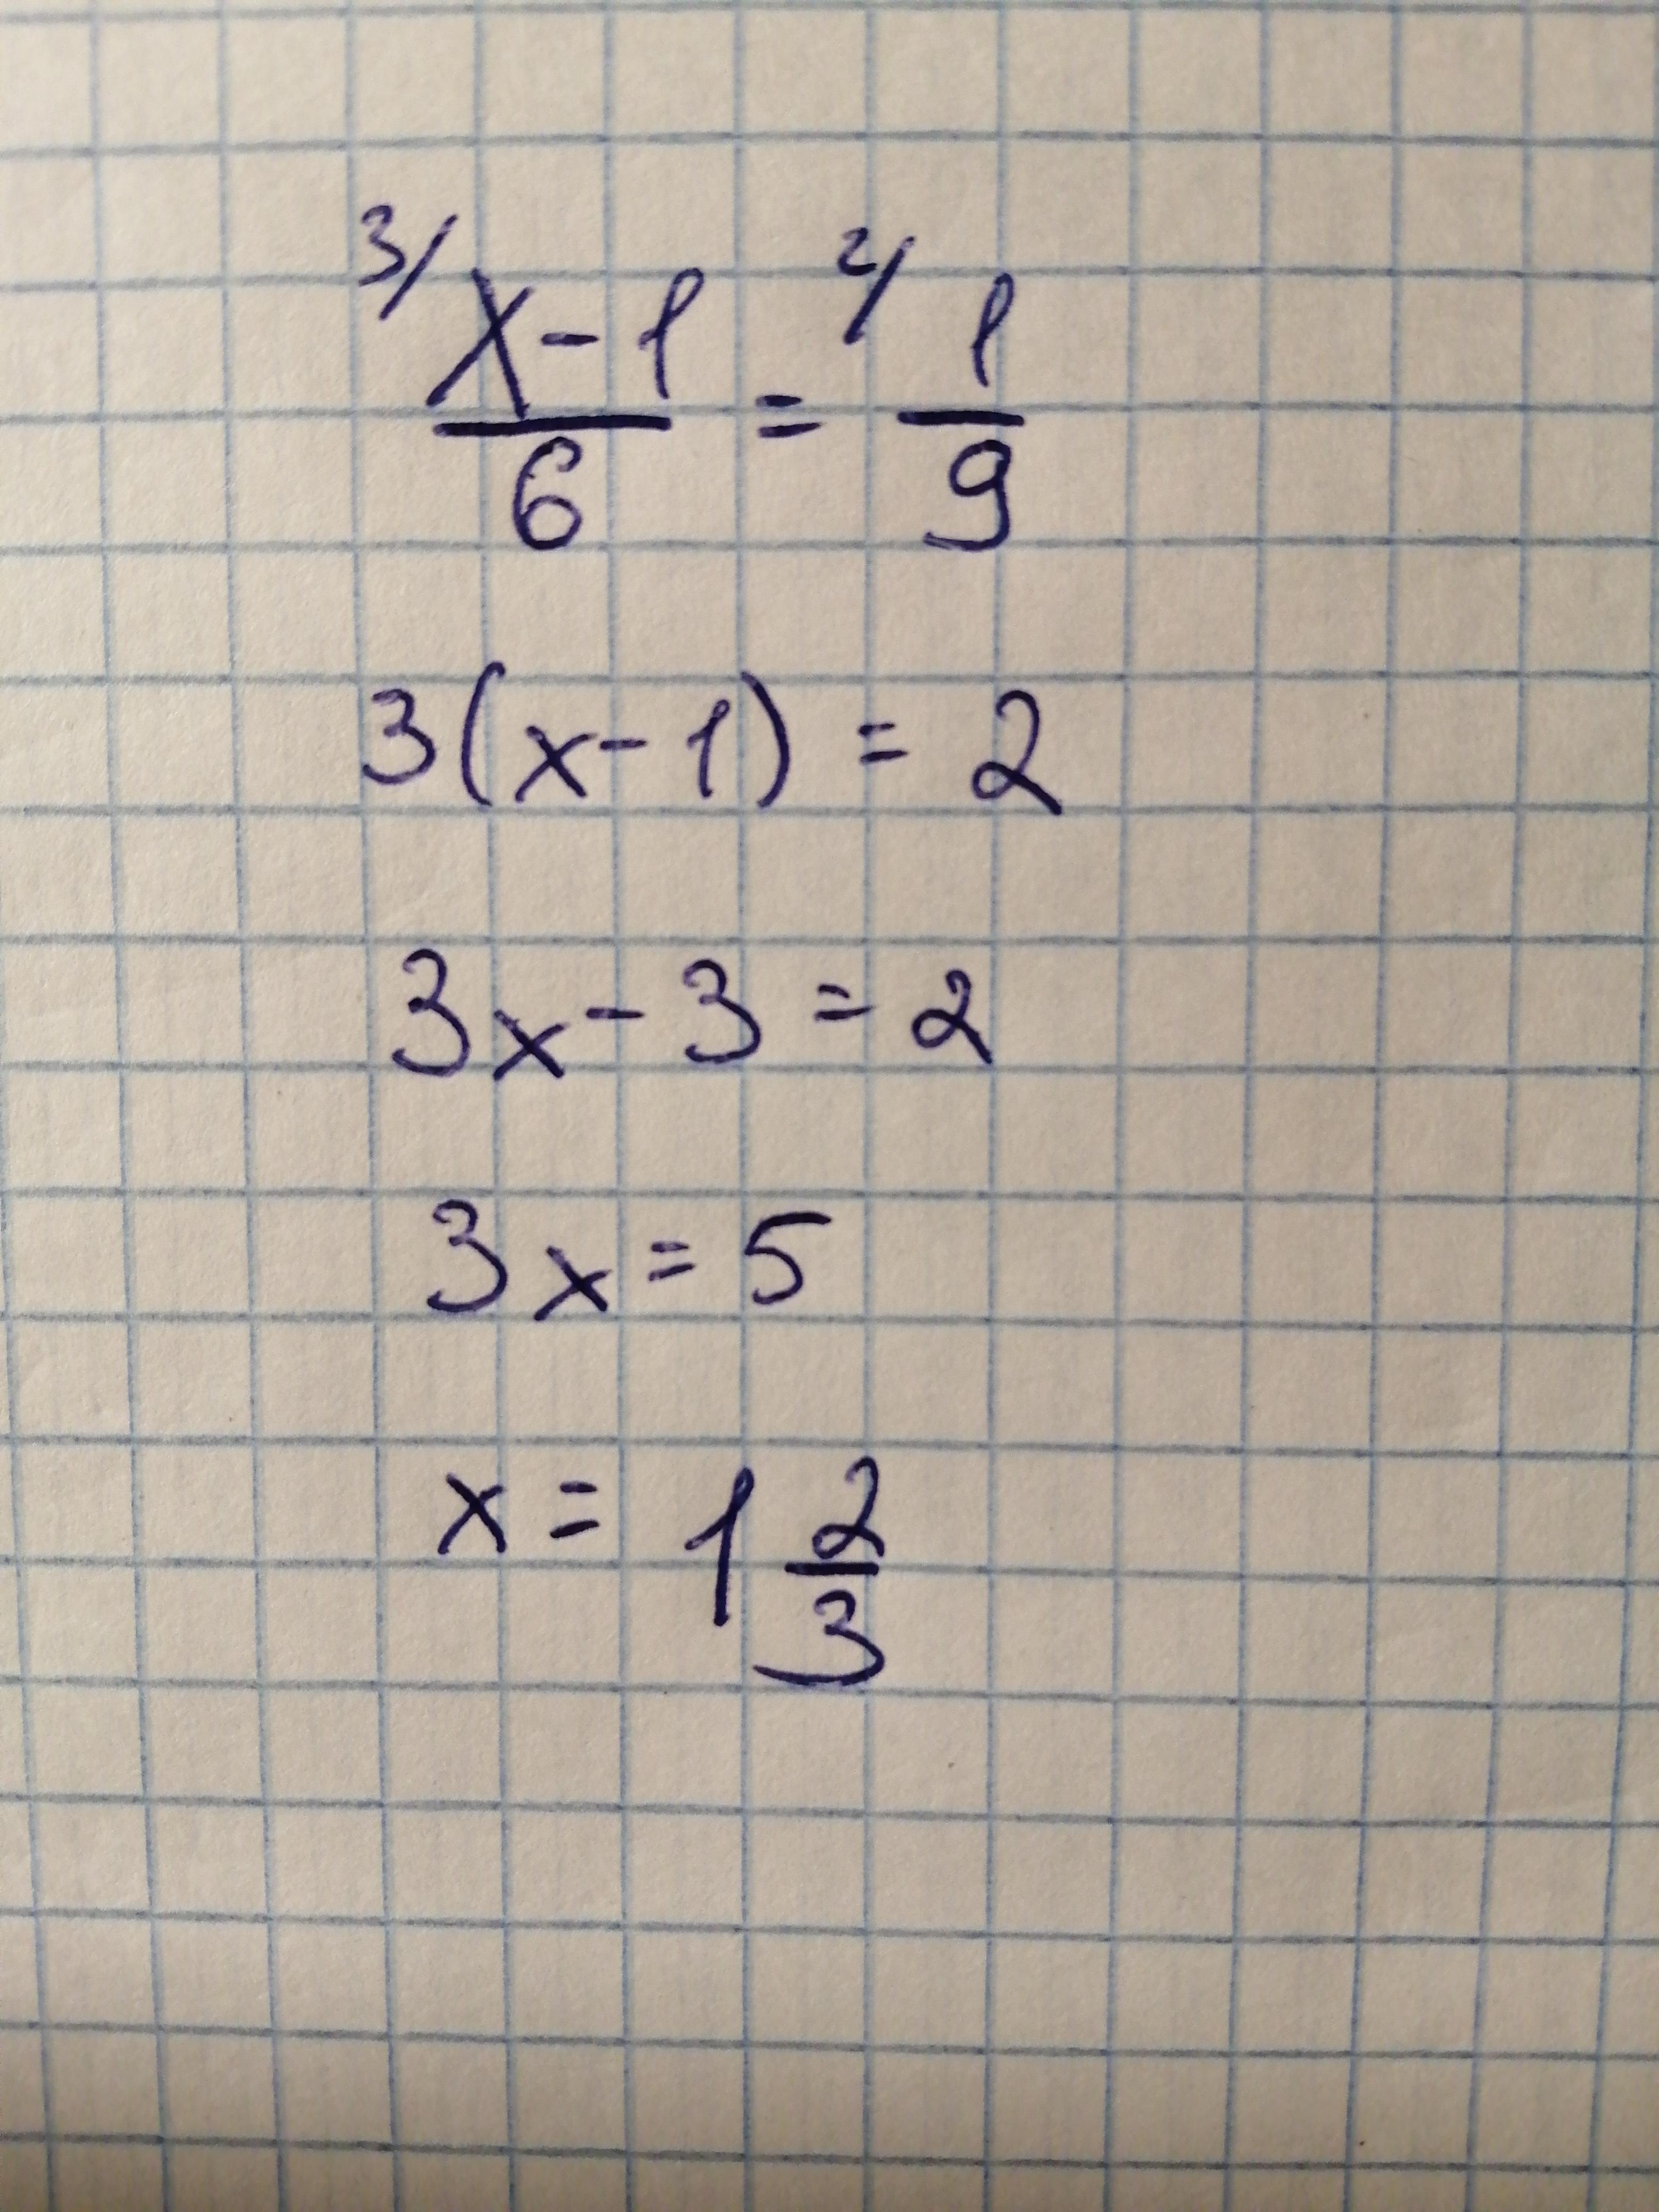 3/ x-1/6 = 2/ 1/9
3(x-1) = 2
3x-3=2
3x=5
x = 1 2/3